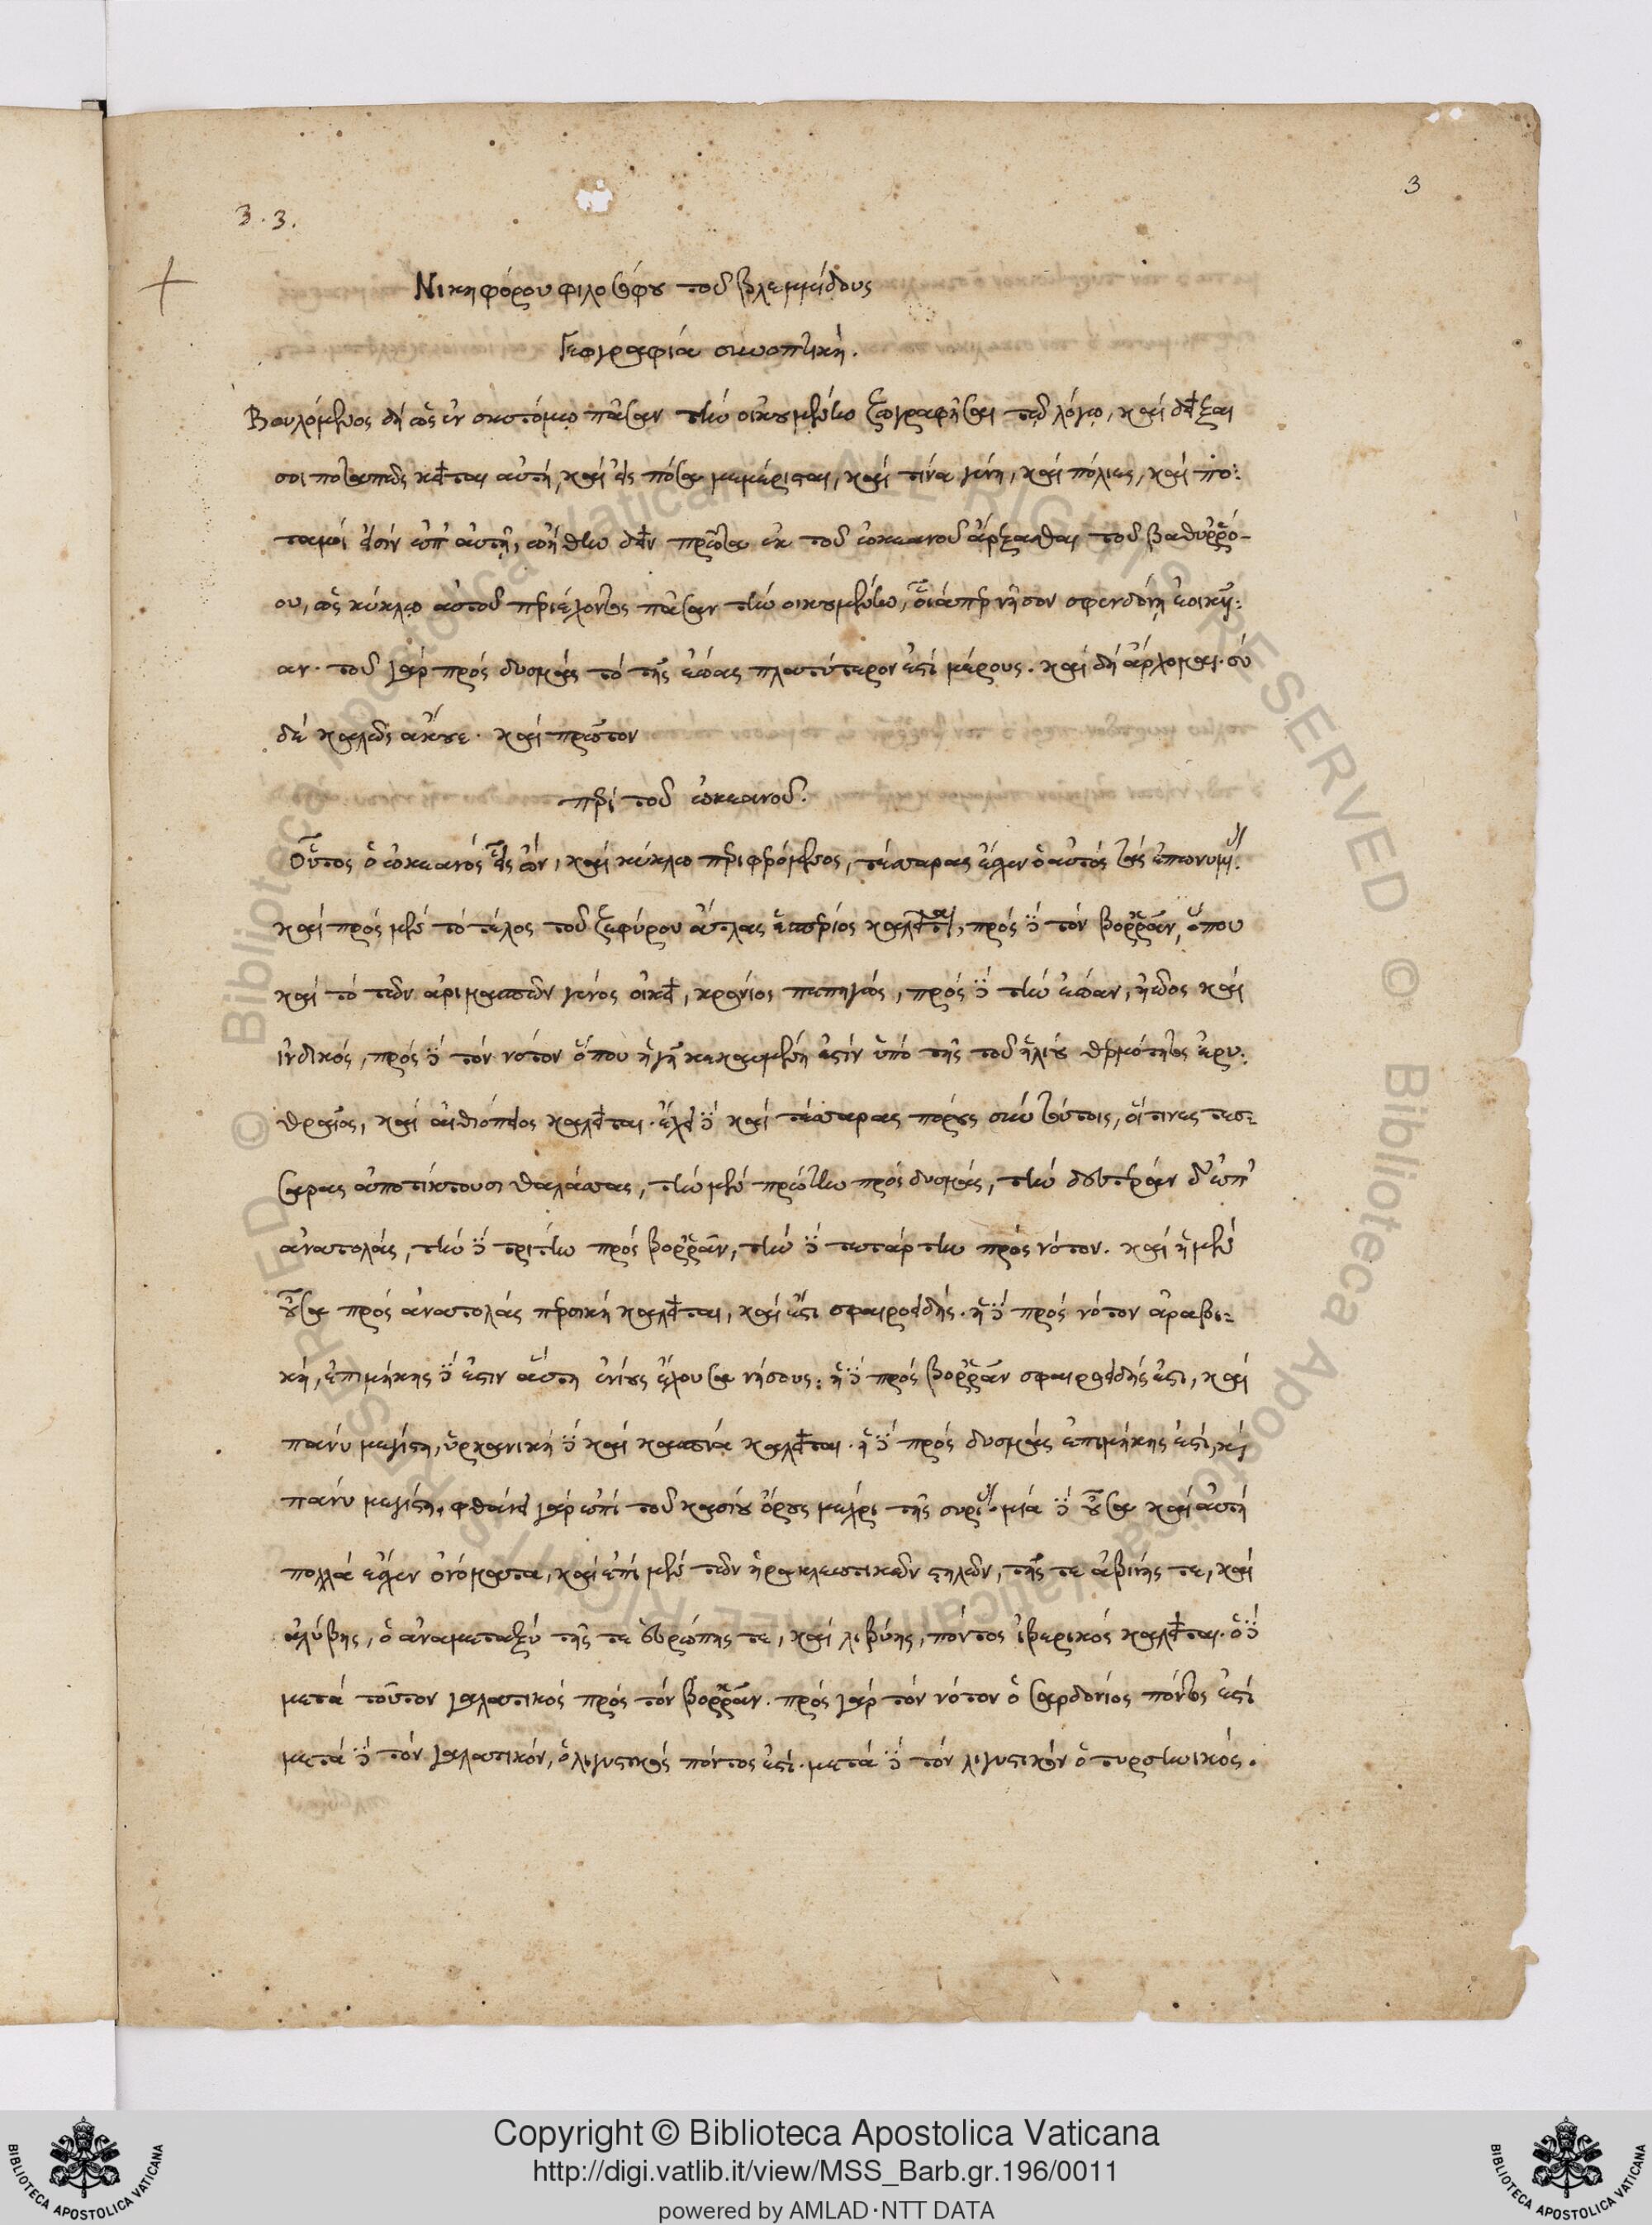 3
3.3.
Νικηφόρου φιλοσόφου τοῦ βλεμμίδους
Γεωγραφία συνοπτική.
Βουλόμενος δὴ ὡς ἐν συντόμω πᾶσαν τὴν οἰκουμένην ζωγραφῆσαι τῷ λόγῳ, καὶ δεῖξαι
σοι ποταπῶς κεῖται αὐτὴ, καὶ εἰς πόσα μεμέρισται, καὶ τίνα γένη, καὶ πόλιες, καὶ πο:
ταμοί εἰσὶν ἐπ' αὐτῇ, ᾠήθην δεῖν πρῶτα ἐκ τοῦ ὠκεανοῦ ἄρξασθαι τοῦ βαθυῤῥό-
ου, ὡς κύκλῳ αὐτοῦ περιέχοντος πᾶσαν τὴν οἰκουμένην, οἷάπερ νῆσον σφενδόνῃ ἐοικυῖ:
αν. τοῦ γὰρ πρὸς δυσμὰς τὸ τῆς ἑῴας πλατύτερον ἐστὶ μέρους. καὶ δὴ ἄρχομαι. σὺ
δὲ καλῶς ἄκουε. καὶ πρῶτον
περὶ τοῦ ὠκεανοῦ.
Οὗτος ὁ ὠκεανός εἷς ὢν, καὶ κύκλω περιφερόμενος, τέσσαρας ἔχει ὁ αὐτὸς τὰς ἐπωνυμίας.
καὶ πρὸς μὲν τὸ τέλος τοῦ ζεφύρου ἄτλας ἑσπέριος καλεῖται, πρὸς δὲ τὸν βοῤῥᾶν, ὅπου
καὶ τὸ τῶν ἀριμασπῶν γένος οἰκεῖ, κρόνιος πεπηγὼς, πρὸς δὲ τὴν ἑῴαν, ἠῷος καὶ
ἰνδικός, πρὸς δὲ τὸν νότον ὅπου ἡ γῆ κεκαυμένη ἐστὶν ὑπὸ τῆς τοῦ ἡλίου θερμότητος ἐρυ:
θραῖος, καὶ αἰθιόπειος καλεῖται. ἔχει δὲ καὶ τέσσαρας πόρους σὺν τούτοις, οἵτινες τεσ:
σαρας ἀποτίκτουσι θαλάσσας, τὴν μὲν πρώτην πρὸς δυσμὰς, τὴν δευτέραν δ' ἐπ'
ἀνατολάς, τὴν δὲ τρίτην πρὸς βοῤῥᾶν, τὴν δὲ τετάρτην πρὸς νότον. καὶ ἡ μὲν
οὖσα πρὸς ἀνατολάς περσικὴ καλεῖται, καὶ ἔστι σφαιροειδής. ἡ δὲ πρὸς νότον ἀραβι:
κὴ, ἐπιμήκης δὲ ἐστιν αὕτη ἐνίους ἔχουσα νήσους: ἡ δὲ πρὸς βοῤῥᾶν σφαιροειδής ἐστι, καὶ
πάνυ μεγίστη, ὑρκανικὴ δὲ καὶ κασπία καλεῖται. ἡ δὲ πρὸς δυσμὰς ἐπιμήκης ἐστὶ, καὶ
πάνυ μεγίστη. φθάνει γὰρ ἐπὶ τοῦ κασίου ὄρους μέχρι τῆς συρίας. μία δὲ οὖσα καὶ αὐτὴ
πολλὰ ἔχει ὀνόματα, καὶ ἐπὶ μὲν τῶν ἡρακλεωτικῶν στηλῶν, τῆς τε ἀβίνης τε, καὶ
ἀλύβης, ὁ ἀναμεταξὺ τῆς τε εὐρώπης τε, καὶ λιβύης, πόντος ἰβερικός καλεῖται. ὁ δὲ
μετὰ τοῦτον γαλατικός πρὸς τὸν βοῤῥᾶν. πρὸς γὰρ τὸν νότον ὁ σαρδόνιος πόντος ἐστὶ
μετὰ δὲ τὸν γαλατικόν, ὁ λιγυστικός πόντος ἐστὶ. μετὰ δὲ τὸν λιγυστικὸν ὁ τυρσηνικός.
Copyright © Biblioteca Apostolica Vaticana
http://digi.vatlib.it/view/MSS_Barb.gr.196/0011
powered by AMLAD·NTT DATA